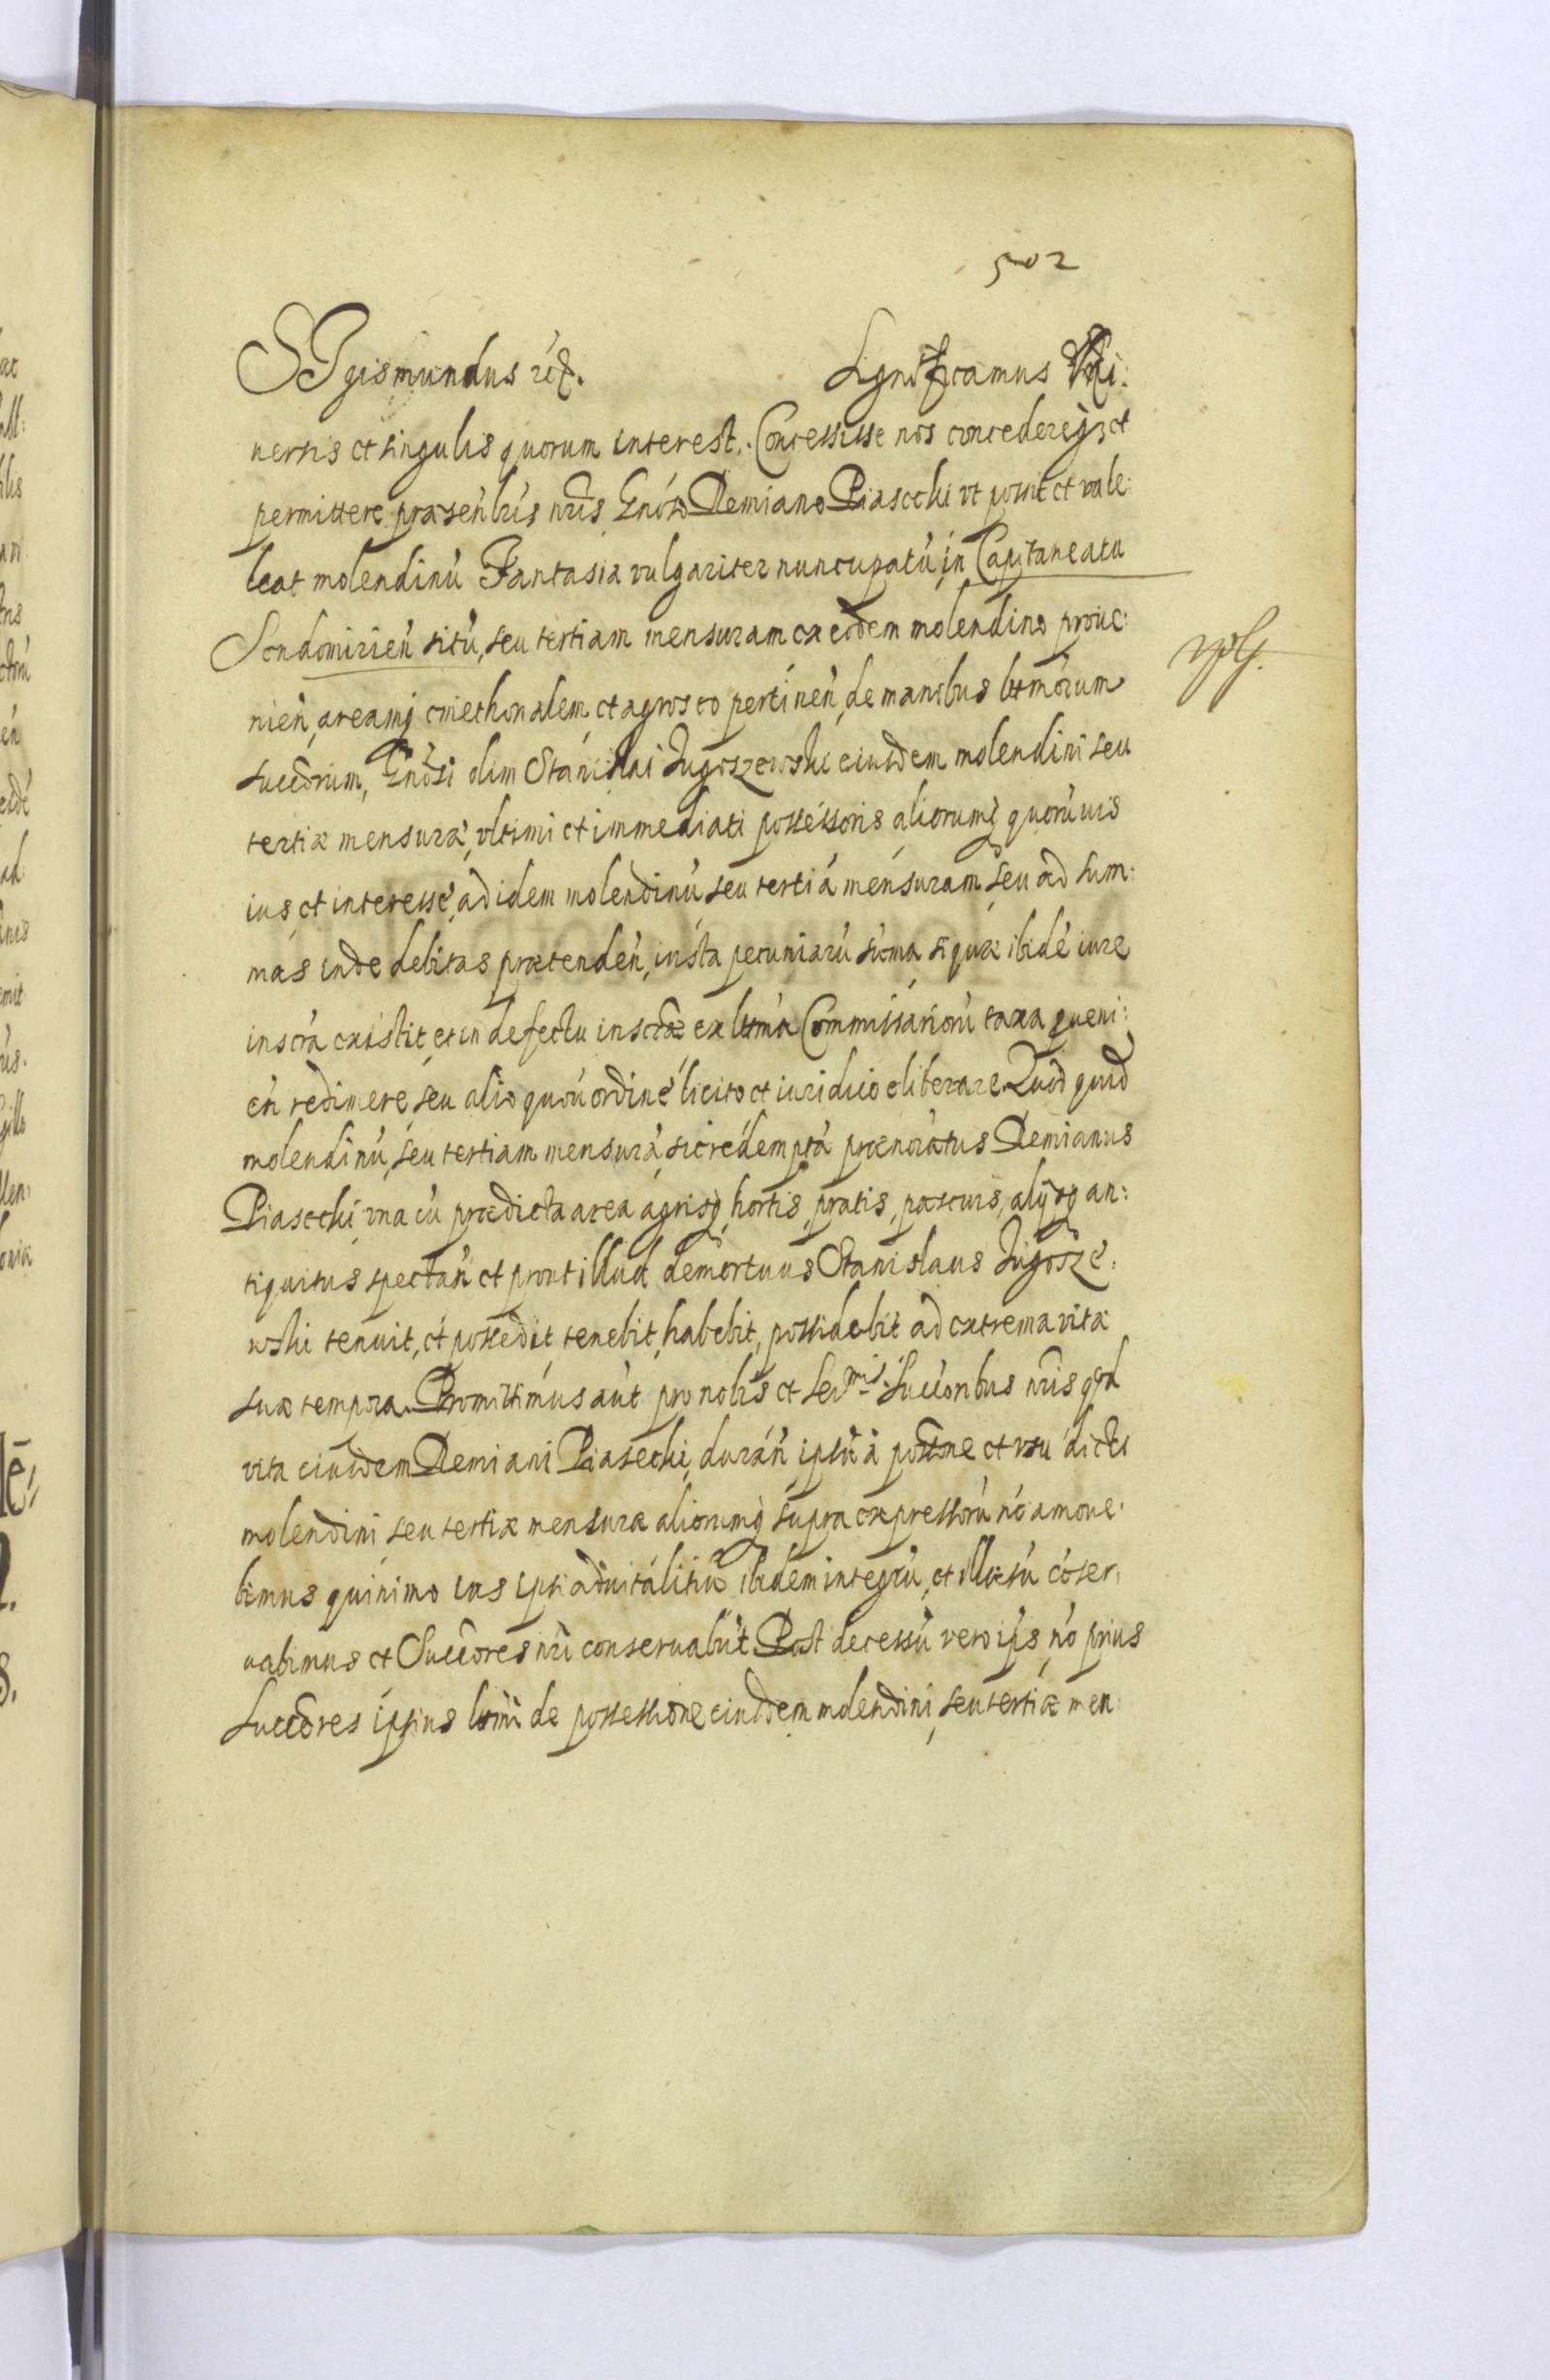 502
SIgismundus rex. Significamus Vni:
uersis et singulis quorum interest. Concessisse nos concedereq3 et
permittere præsentibus nris Gnoso Demiano Piasecki vt possit et vale:
leat molendinu Fantasia vulgariter nuncupatu in Capitaneatu
Sendomirien situ, seu tertiam mensuram ex eodem molendino proue:
nien, areamq cmethonalem et agros eo pertinen, de manibus lttmorum
succorum, Gnosi olim Stanislai Jugoszewski eiusdem molendini seu
tertiæ mensuræ, vltimi et immediati possessoris aliorumq quoruuis
ius et interesse, ad idem molendinu seu tertia mensuram seu ad sum:
mas inde debitas prætenden, iusta pecuniaru suma si quæ ibide iure
inscra existit, et in defectu inscræ ex lttma Commissarioru taxa queni:
en redimere, seu alio quouordine licito et iuridico eliberare. Quod quid
molendinu, seu tertiam mensura, sic redempta prænoiatus Demianus
Piasecki vna cu prædicta area agrisq hortis, pratis, pascuis, alysq an:
tiquitus spectan et prout illud demortuus Stanislaus Jugosze:
wski tenuit, et possedit, tenebit, habebit, possidebit ad extrema vitæ
suæ tempora. Promittimus aut pro nobis et Sermis Succoribus nris qod
vita eiusdem Demiani Piasecki, duran ipsu a possone et vsu dicti
molendini seu tertiæ mensuræ aliorumq supra expressoru no amoue:
bimus quinimo ius ipsi aduitalitiu ibidem integru, et illæsu coser:
uabimus et Succores nri conseruabut. Post decessu vero ipis, no prius
Succores ipsius lttmi de possessione eiusdem molendini, seu tertiæ men: